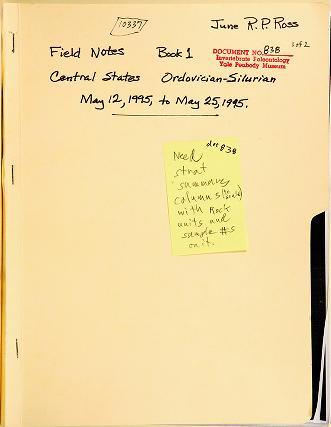 10337
June R.P. Ross
Field Notes Book 1
DOCUMENT NO. 838 1 of 2
Invertebrate Paleontology
Yale Peabody Museum
Central States Ordovician-Silurian
May 12, 1995, to May 25, 1995.
doc 838
Need
strat
summary
columns (to scale)
with Rock
units and
sample #s
on it.